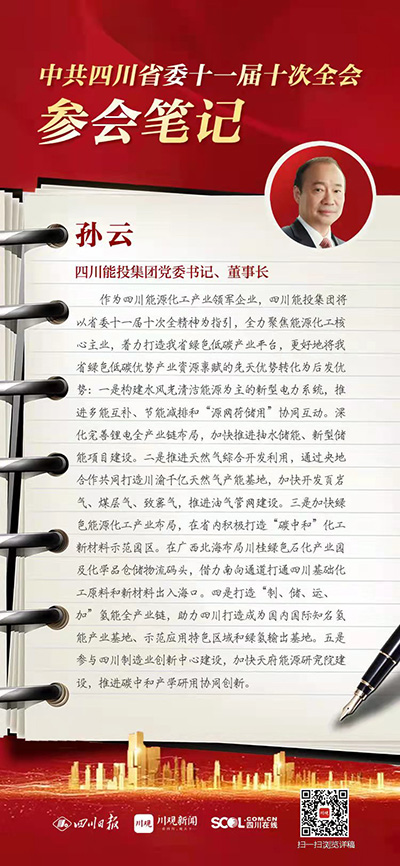 中共四川省委十一届十次全会
参会笔记
孙云
四川能投集团党委书记、董事长
作为四川能源化工产业领军企业，四川能投集团将
以省委十一届十次全精神为指引，全力聚焦能源化工核
心主业，着力打造我省绿色低碳产业平台，更好地将我
省绿色低碳优势产业资源禀赋的先天优势转化为后发优
势：一是构建水风光清洁能源为主的新型电力系统，推
进多能互补、节能减排和“源网荷储用”协同互动。深
化完善锂电全产业链布局，加快推进抽水储能、新型储
能项目建设。二是推进天然气综合开发利用，通过央地
合作共同打造川渝千亿天然气产能基地，加快开发页岩
气、煤层气、致密气，推进油气管网建设。三是加快绿
色能源化工产业布局，在省内积极打造“碳中和”化工
新材料示范园区。在广西北海布局川桂绿色石化产业园
及化学品仓储物流码头，借力南向通道打通四川基础化
工原料和新材料出入海口。四是打造“制、储、运、
加”氢能全产业链，助力四川打造成为国内国际知名氢
能产业基地、示范应用特色区域和绿氢输出基地。五是
参与四川制造业创新中心建设，加快天府能源研究院建
设，推进碳中和产学研用协同创新。
四川日报
川观
川观新闻
SCOL.COM.CN
四川在线
扫一扫浏览详稿